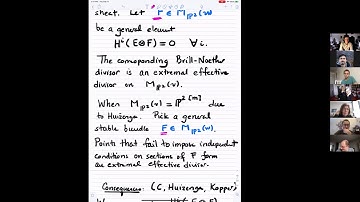 sheaf. Let F ∈ M_{ℙ²}(w)
be a general element
Hⁱ(E⊗F) = 0 ∀ i.
The corresponding Brill-Noether
divisor is an extremal effective
divisor on M_{ℙ²}(v).
When M_{ℙ²}(v) = ℙ²^{[m]} due
to Huizenga. Pick a general
stable bundle F ∈ M_{ℙ²}(w).
Points that fail to impose independent
conditions on sections of F form
an extremal effective divisor.
Consequence: (C, Huizenga, Kopper)